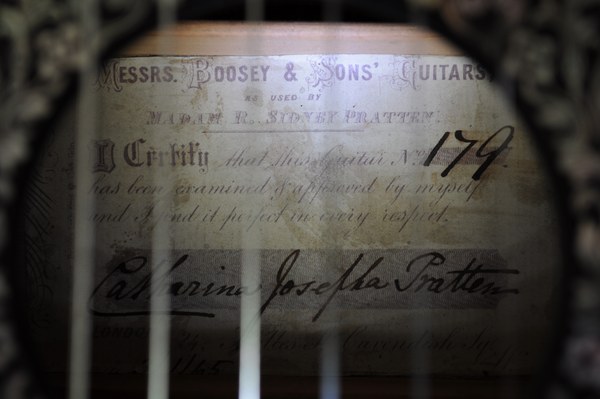 MESSRS. BOOSEY & SONS' GUITARS,
AS USED BY
MADAM R. SIDNEY PRATTEN.
I Certify that this Guitar No. 179.
has been examined & approved by myself
and I find it perfect in every respect.
Catharina Josepha Pratten
LONDON
Cavendish Sq.